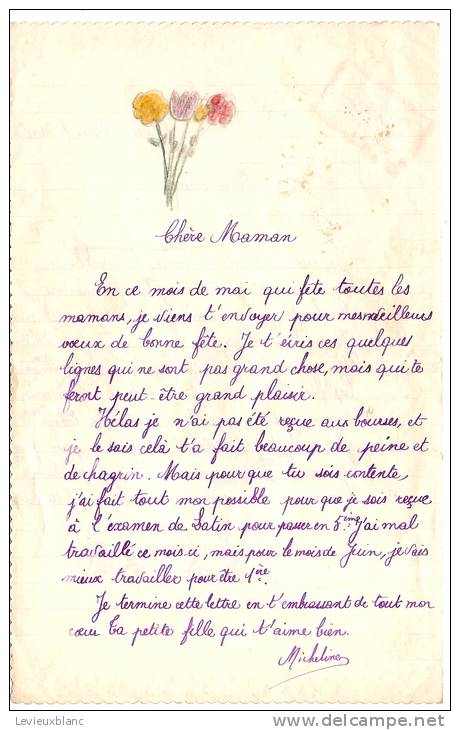 Chère Maman
En ce mois de mai qui fête toutes les
mamans, je viens t'envoyer pour mes meilleurs
vœux de bonne fête. Je t'éiris ces quelques
lignes qui ne sont pas grand chose, mais qui te
feront peut-être grand plaisir.
Hélas je n'ai pas été reçue aux bourses, et
je le sais celà t'a fait beaucoup de peine et
de chagrin. Mais pour que tu sois contente,
j'ai fait tout mon possible pour que je sois reçue
à l'examen de Latin pour passer en 5ème. J'ai mal
travaillé ce mois-ci, mais pour le mois de Juin, je vais
mieux travailler pour être 1ère.
Je termine cette lettre en t'embrassant de tout mon
cœur Ta petite fille qui t'aime bien.
Micheline
Levieuxblanc
http://www.delcampe.net